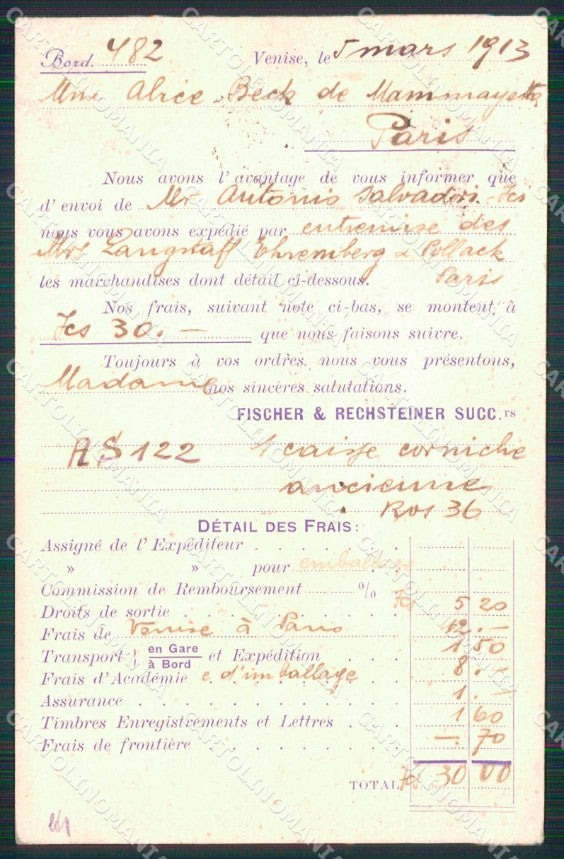 Bord. 482 Venise, le 5 mars 1913
Mme Alice Beck de Mammayetta
Paris
Nous avons l'avantage de vous informer que
d'envoi de Mr. Antonio Salvadori. Ici
nous vous avons expédié par entremise des
Mrs Langstaff Ehremberg & Pollack
les marchandises dont détail ci-dessous. Paris
Nos frais, suivant note ci-bas, se montent à
Fcs 30.- que nous faisons suivre.
Toujours à vos ordres nous vous présentons,
Madame nos sincères salutations.
FISCHER & RECHSTEINER SUCC.rs
AS 122 1 caisse corniche
ancienne
Kos 36
DÉTAIL DES FRAIS:
Assigné de l'Expéditeur
» » pour emballage
Commission de Remboursement %
Droits de sortie Fcs 5 20
Frais de Venise à Paris 12.-
Transport en Gare à Bord et Expédition 1 50
Frais d'Académie e d'imballage 8.-
Assurance 1.-
Timbres Enregistrements et Lettres 1 60
Frais de frontière -.70
TOTAL Fcs 30 00
CARTOLINOMANIA